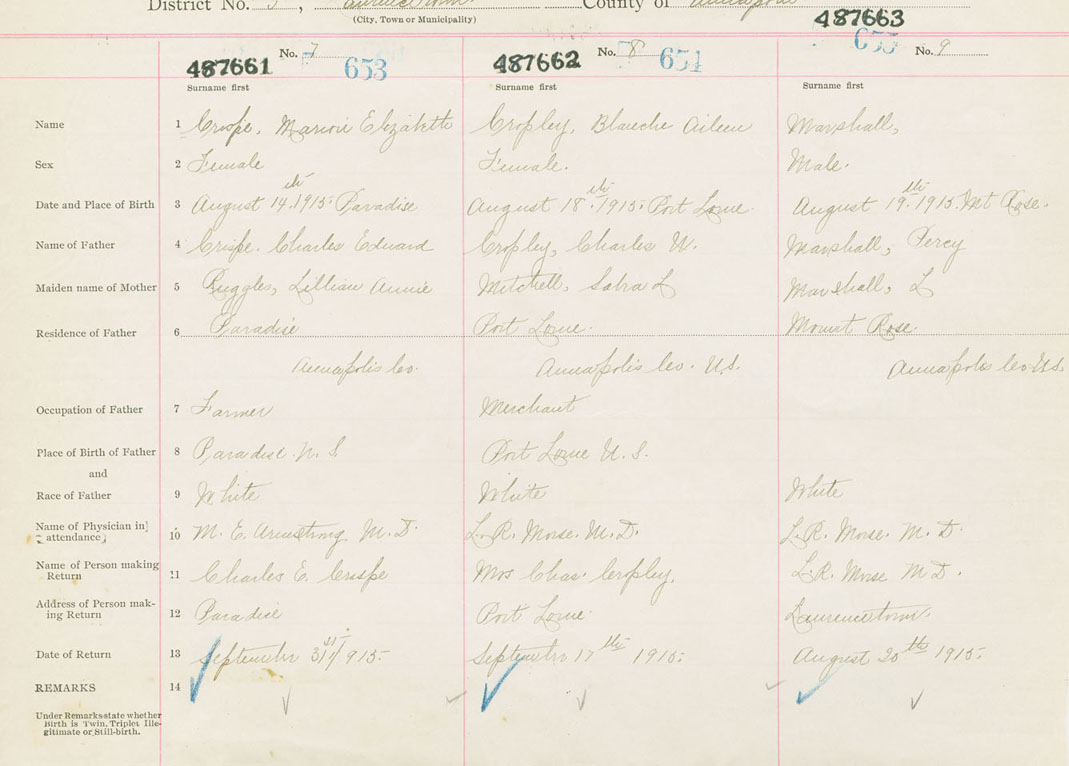 District No. 3, Laurencetown County of Annapolis
(City, Town or Municipality)
487661 No. 7 653 487662 No. 8 654 487663 655 No. 9
Surname first Surname first Surname first
Name 1 Crispe, Marion Elizabeth Cropley, Blanche Aileen Marshall,
Sex 2 Female Female. Male.
Date and Place of Birth 3 August 14th 1915. Paradise August 18th 1915. Port Lorne. August 19th 1915. Mt Rose.
Name of Father 4 Crispe. Charles Edward Cropley, Charles W. Marshall, Percy
Maiden name of Mother 5 Ruggles, Lillian Annie Mitchell, Sabra L Marshall, L
Residence of Father 6 Paradise Port Lorne. Mount Rose.
Annapolis Co. Annapolis Co. N.S. Annapolis Co. N.S.
Occupation of Father 7 Farmer Merchant
Place of Birth of Father 8 Paradise. N. S Port Lorne N. S.
and
Race of Father 9 White White White
Name of Physician in attendance 10 M. E. Armstrong. M. D. L. R. Morse. M. D. L. R. Morse. M. D.
Name of Person making Return 11 Charles E. Crispe Mrs Chas. Cropley. L. R. Morse M D.
Address of Person making Return 12 Paradise Port Lorne. Laurencetown.
Date of Return 13 September 31st 1915. September 17th 1915. August 20th 1915.
REMARKS 14
Under Remarks state whether
Birth is Twin, Triplet Ille-
gitimate or Still-birth.